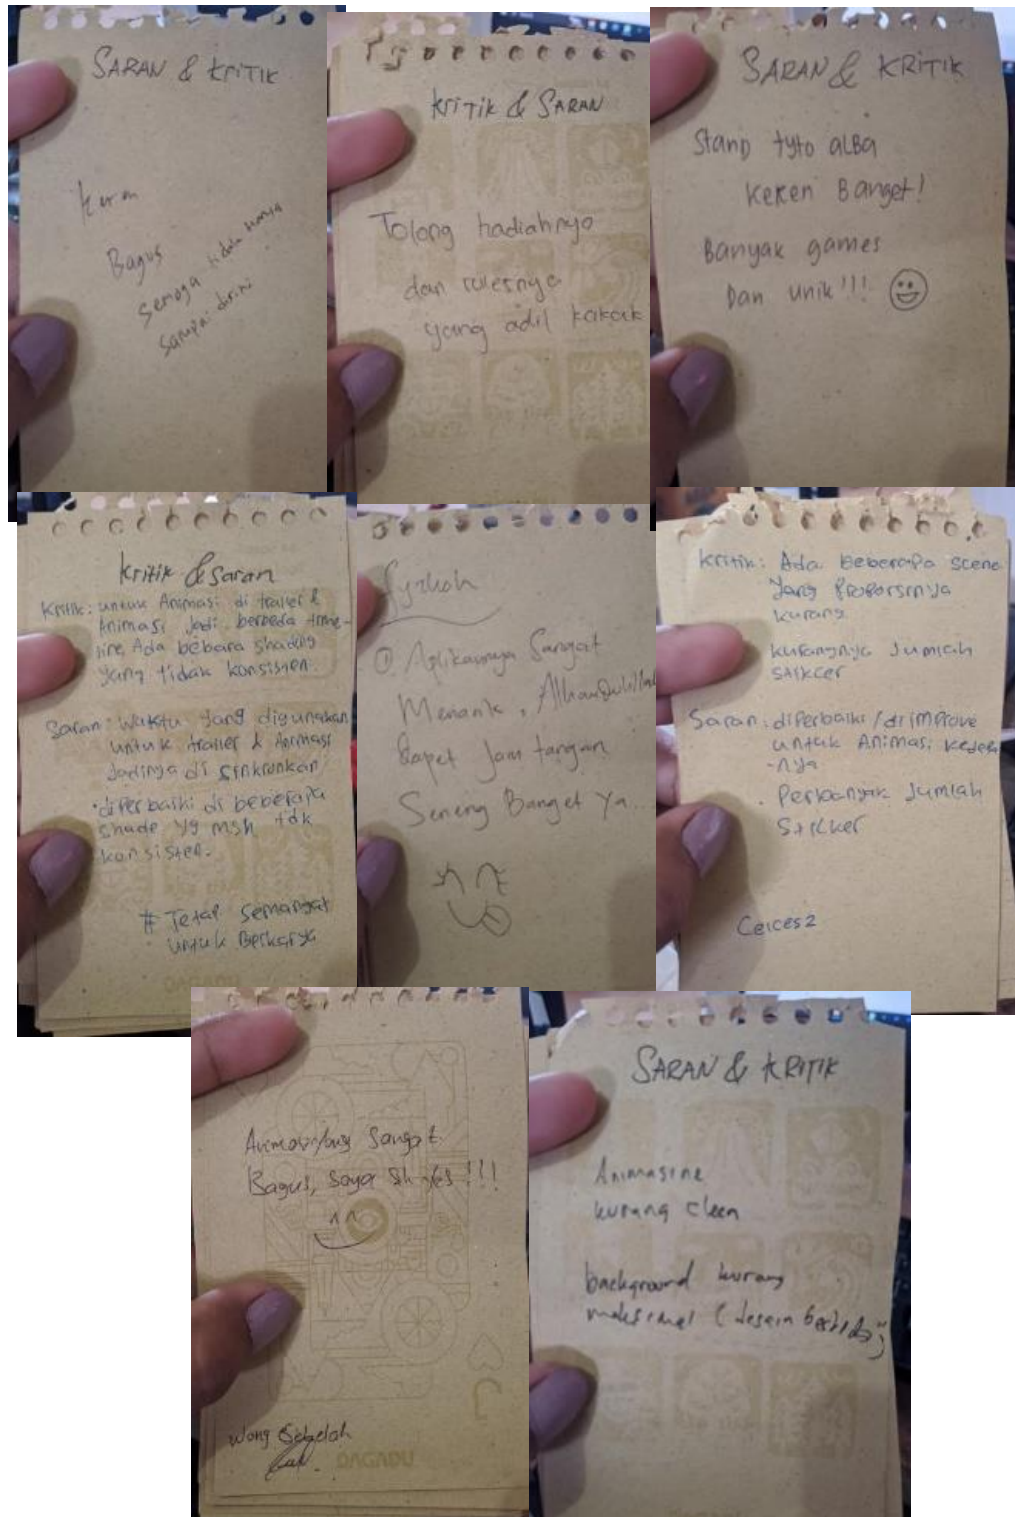 SARAN & KRITIK
keren
Bagus
semoga tidak hanya
sampai disini
KRITIK & SARAN
Tolong hadiahnya
dan rulesnya
yang adil kakak
SARAN & KRITIK
Stand tyto alba
keren Banget!
Banyak games
Dan unik!!!
Kritik & Saran
Kritik: untuk Animasi di trailer &
Animasi jadi berbeda time-
line, Ada bebara shading
yang tidak konsisten.
Saran: Waktu yang digunakan
untuk trailer & Animasi
Jadinya di sinkronkan
• diperbaiki di beberapa
shade yg msh tdk
konsisten.
# Tetap semangat
untuk Berkarya
DAGADU
Aplikasinya Sangat
Menarik, Alhamdulillah
dapet Jam tangan
Seneng Banget Ya...
Kritik: Ada beberapa scene
yang proporsinya
kurang
kurangnya Jumlah
stikcer
Saran: diperbaiki/diimprove
untuk Animasi kedepa
-nya
. Perbanyak Jumlah
Sticker
Ceices2
Animasinya Sangat
Bagus, Saya
Wong Sebelah
DAGADU
SARAN & KRITIK
Animasine
kurang cleen
background kurang
maksimal (desain